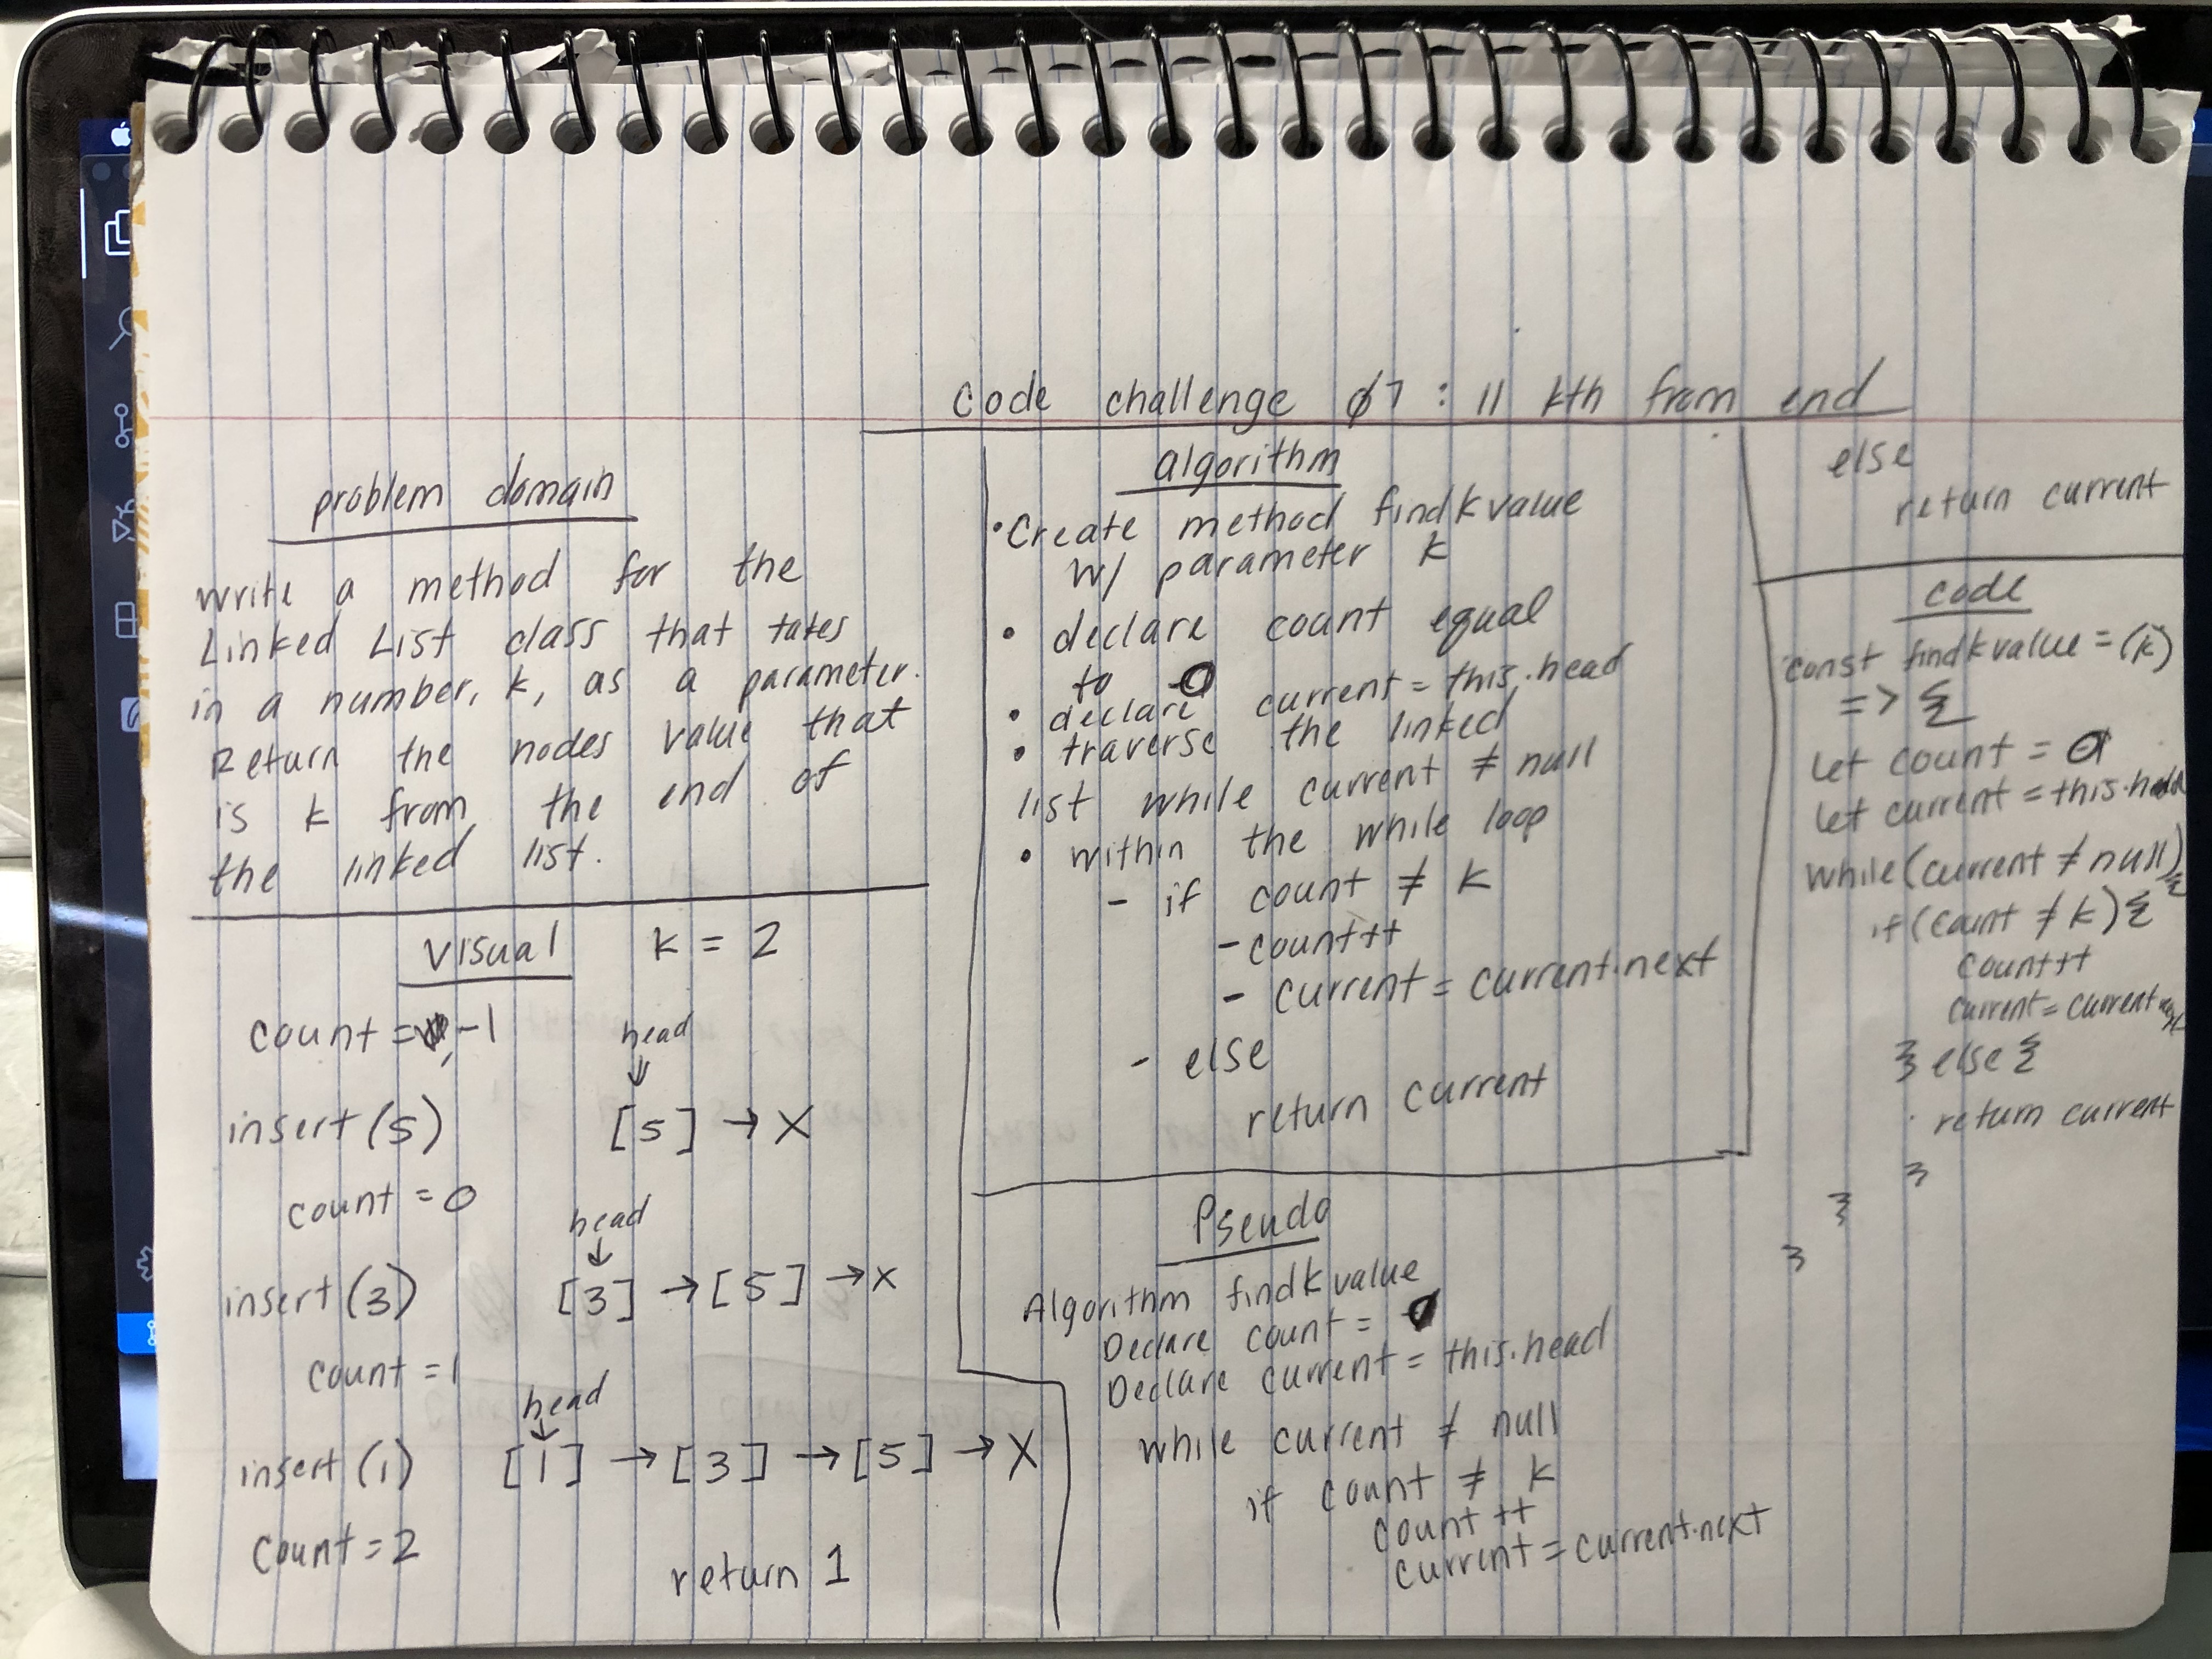 code challenge 07 : ll kth from end
problem domain
write a method for the
Linked List class that takes
in a number, k, as a parameter.
Return the nodes value that
is k from the end of
the linked list.
Visual k = 2
count = -1
head
insert (5) [5] → X
count = 0
head
insert (3) [3] → [5] → X
count = 1
head
insert (1) [1] → [3] → [5] → X
count = 2
return 1
algorithm
• Create method findkvalue
w/ parameter k
• declare count equal
to 0
• declare current = this.head
• traverse the linked
list while current ≠ null
• within the while loop
- if count ≠ k
- count++
- current = current.next
- else
return current
Pseudo
Algorithm findkvalue
Declare count = 0
Declare current = this.head
while current ≠ null
if count ≠ k
count ++
current = current.next
else
return current
code
const findkvalue = (k)
=> {
let count = 0
let current = this.head
while (current ≠ null) {
if (count ≠ k) {
count++
current = current.next
} else {
return current
}
}
}